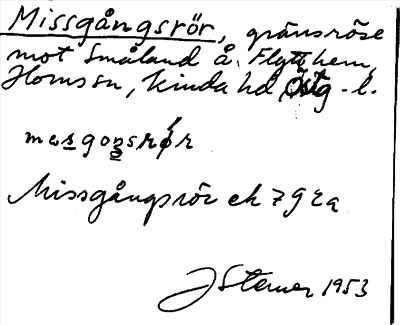 Missgångsrör, gränsröse
mot Småland å Flytthem,
Hornssn, Kinda hd, Östg. l.
mesgoŋsrør
Missgångsrör ek 7 9 2 a
J Sterner 1953